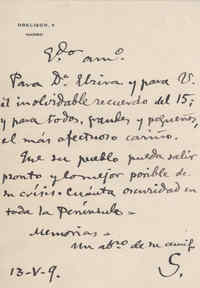 OBELISCO, 8
MADRID
Qdo. amo.
Para Da. Elvira y para V.
el inolvidable recuerdo del 15;
y para todos, grandes y pequeños,
el más afectuoso cariño.
Que su pueblo pueda salir
pronto y lo mejor posible de
su crisis. Cuánta oscuridad en
toda la Península.
Memorias.
Un abzo. de su amigo
S.
13-V-9.